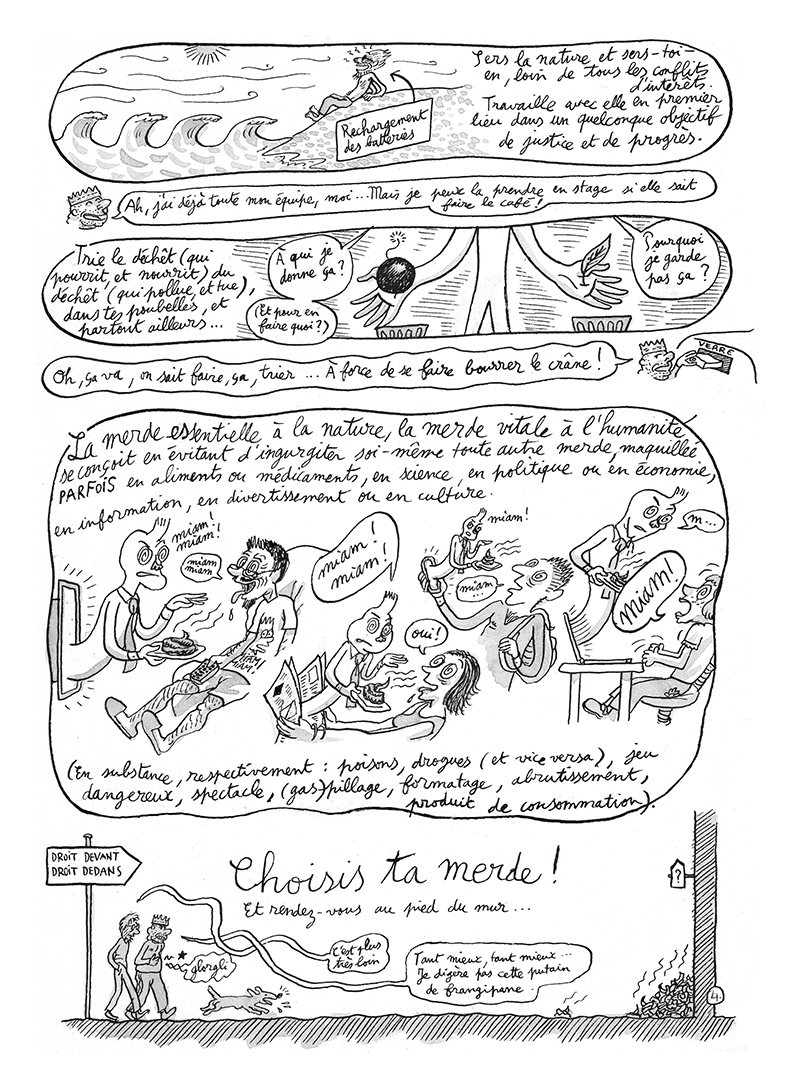 Sers la nature et sers-toi-
en, loin de tous les conflits
d'intérêts.
Travaille avec elle en premier
lieu dans un quelconque objectif
de justice et de progrès.
Rechargement
des batteries
Ah, j'ai déjà toute mon équipe, moi... Mais je peux la prendre en stage si elle sait
faire le café !
Trie le déchêt (qui
pourrit, et nourrit) du
déchêt (qui pollue, et tue),
dans tes poubelles, et
partout ailleurs...
À qui je
donne ça ?
(Et pour en
faire quoi ?)
Pourquoi
je garde
pas ça ?
Oh, ça va, on sait faire, ça, trier ... À force de se faire bourrer le crâne !
VERRE
La merde essentielle à la nature, la merde vitale à l'humanité
se conçoit en évitant d'ingurgiter soi-même toute autre merde, maquillée
PARFOIS en aliments ou médicaments, en science, en politique ou en économie,
en information, en divertissement ou en culture.
miam !
miam !
miam
miam
MIAM
MIAM!
miam !
miam !
oui !
miam !
miam...
m...
miam!
(En substance, respectivement : poisons, drogues (et vice versa), jeu
dangereux, spectacle, (gas)pillage, formatage, abrutissement,
produit de consommation).
DROIT DEVANT
DROIT DEDANS
Choisis ta merde !
Et rendez-vous au pied du mur...
glorgli
C'est plus
très loin
Tant mieux, tant mieux...
Je digère pas cette putain
de frangipane.
?
4.